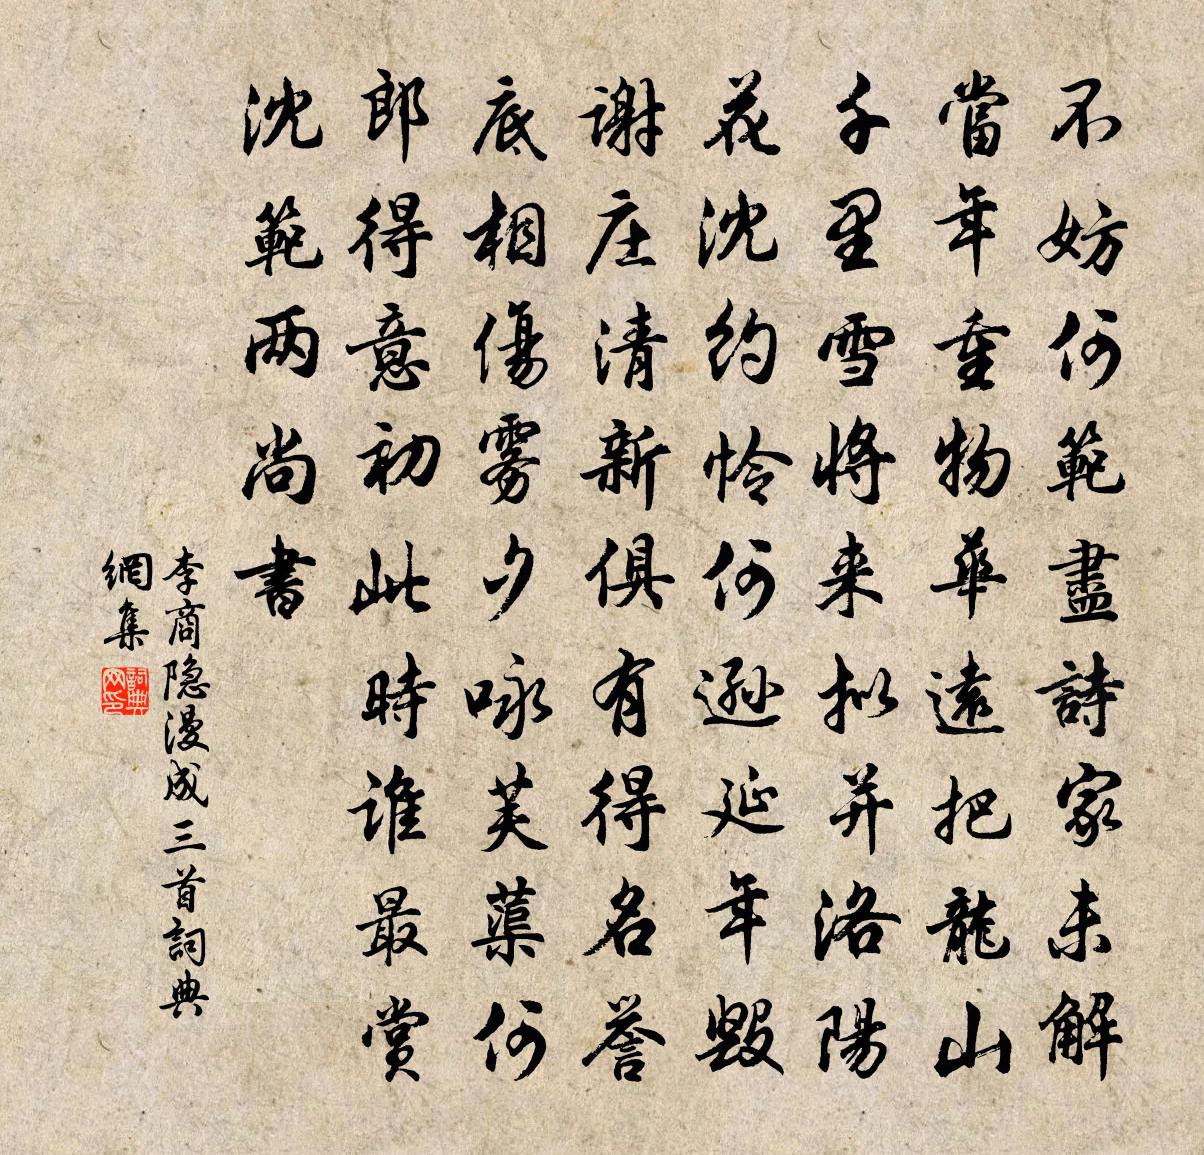 不妨何範盡詩家未解
當年重物華遠把龍山
千里雪將来拟并洛陽
花沈約怜何遜延年毀
謝庄清新俱有得名譽
底相傷雾夕咏芙蕖何
郎得意初此時誰最賞
沈範两尚書
李商隐漫成三首詞典
網集
詞典
网印